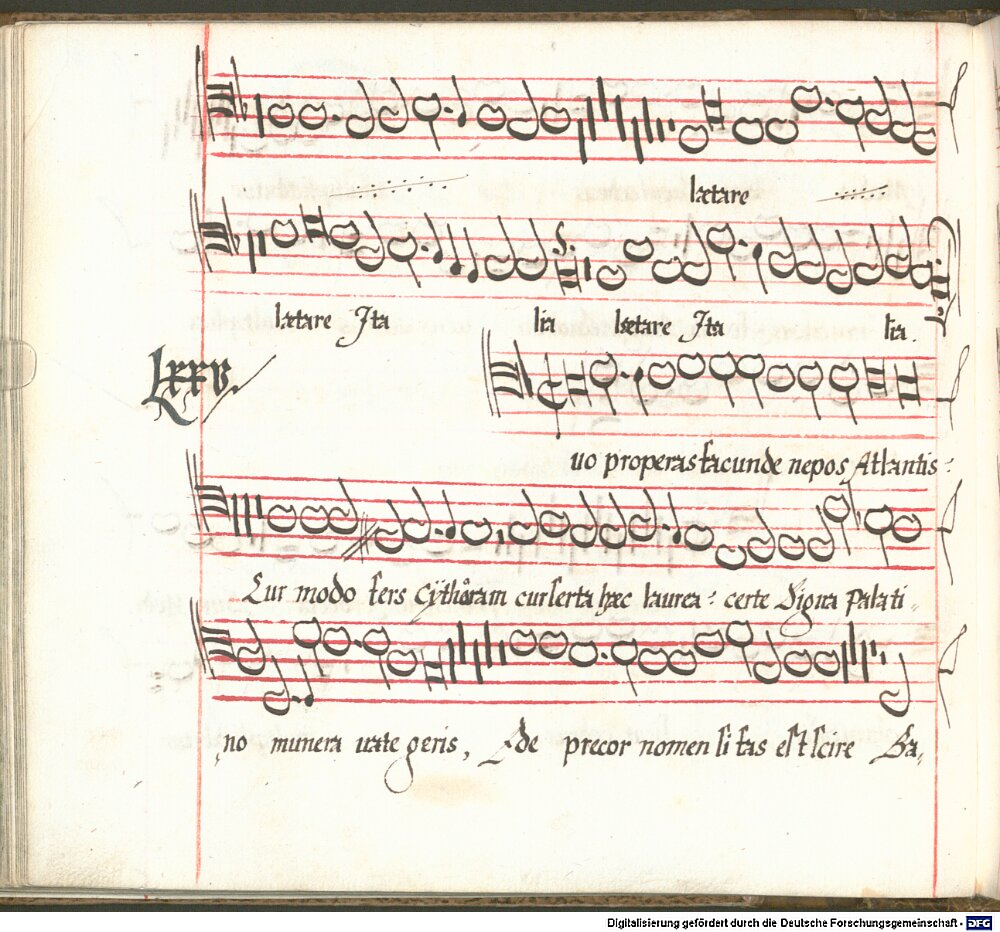 lætare
lætare Ita lia lætare Ita lia.
LXXV.
uo properas facunde nepos Atlantis:
Cur modo fers Cÿtharam cur serta hæc laurea: certe Signa Palati
no munera uate geris, Ede precor nomen si fas est scire Sa,
Digitalisierung gefördert durch die Deutsche Forschungsgemeinschaft - DFG